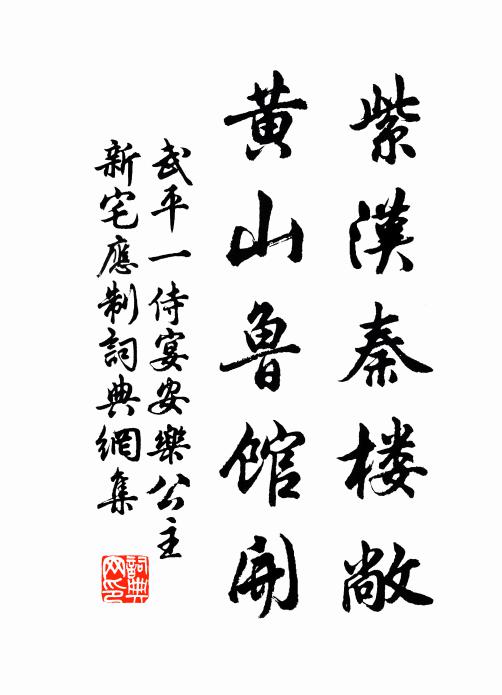 紫漢秦楼敞
黄山魯館開
武平一侍宴安樂公主
新宅應制詞典網集
詞典網印